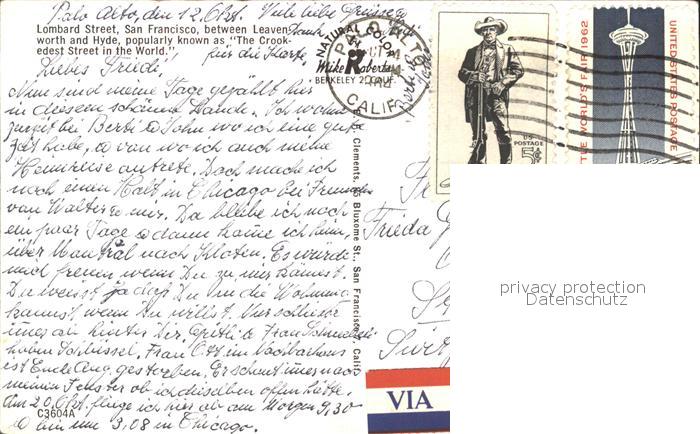 Palo Alto, den 12. Okt. Viele liebe Grüsse
Lombard Street, San Francisco, between Leaven-
worth and Hyde, popularly known as "The Crook-
edest Street in the World."
Dank
für die Karte,
NATURAL COLOR
Mike Roberts
BERKELEY 2, CALIF.
CALIF
U.S. POSTAGE 5¢
SEATTLE WORLD'S FAIR 1962
UNITED STATES POSTAGE
Liebes Friedi!
Nun sind meine Tage gezählt hier
in diesem schönen Lande. Ich wohne
zurzeit bei Berti & John wo ich eine gute
Zeit habe, & von wo ich auch meine
Heimreise antrete. Doch mache ich
noch einen Halt in Chicago bei Freunden
von Walter & mir. Da bleibe ich noch
ein paar Tage & dann komme ich heim,
über Montréal nach Kloten. Es würde
mich freuen wenn Du zu mir kämest.
Du weisst ja dass Du in die Wohnung
kannst wenn Du willst. Der
hinter Frau
haben Schlüssel. Frau Ott im Nachbarhaus
ist Ende Aug. gestorben. Er schaut immer nach
meinen Fenster ob ich dieselben offen hätte.
Am 20. Okt. fliege ich hier ab am Morgen 9,30
& bin um 3,08 in Chicago.
C3604A
Clements, Bluxome St., San Francisco, Calif.
Frieda
VIA
privacy protection
Datenschutz